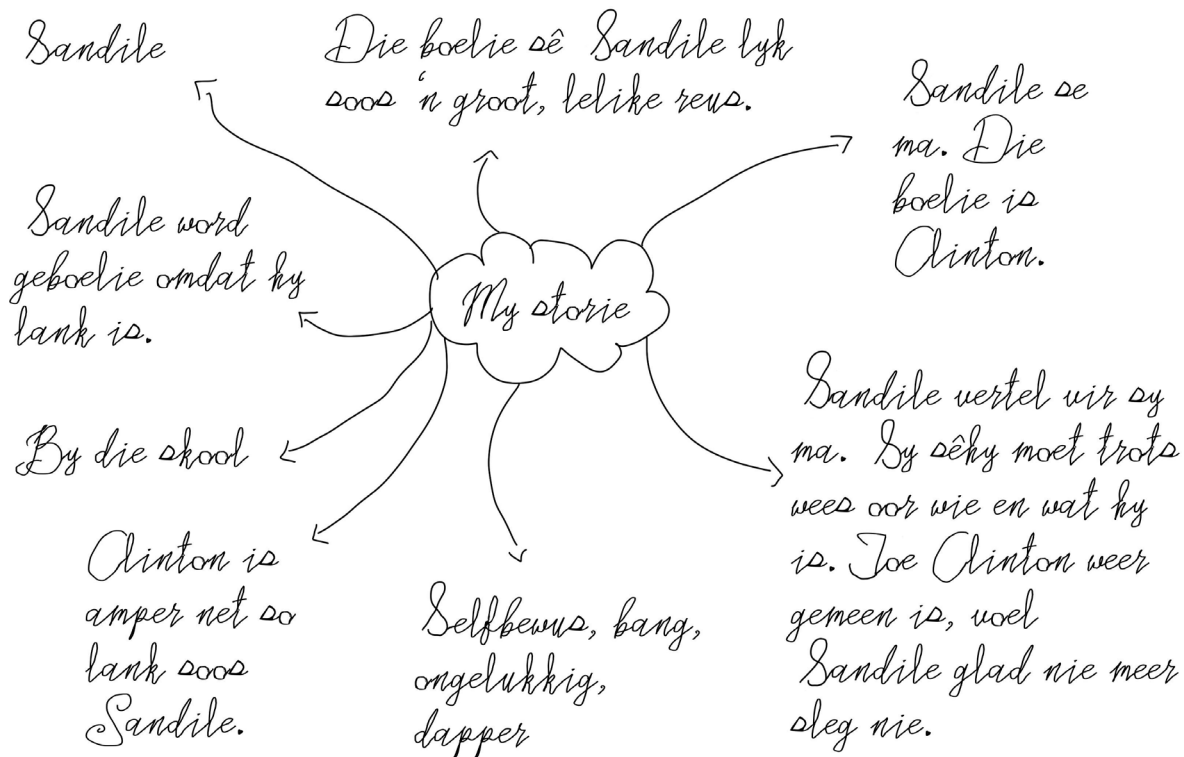 Sandile
Die boelie sê Sandile lyk
soos 'n groot, lelike reus.
Sandile se
ma. Die
boelie is
Clinton.
Sandile word
geboelie omdat hy
lank is.
My storie
By die skool
Clinton is
amper net so
lank soos
Sandile.
Selfbewus, bang,
ongelukkig,
dapper
Sandile vertel vir sy
ma. Sy sêhy moet trots
wees oor wie en wat hy
is. Toe Clinton weer
gemeen is, voel
Sandile glad nie meer
sleg nie.